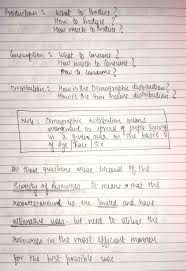 Production : What to Produce ?
How to Produce ?
How much to Produce ?
Consumption : What to Consume ?
How much to Consume ?
How to Consume ?
Distribution : How is the Demographic distribution ?
How is the Income distribution ?
Note : Demographic distribution means
arrangement or spread of people living
in a given area on the basis
of Age, Race, Sex
All these questions arise because of the
Scarcity of Resources. It means that the
resources around us are limited and have
alternative uses. We need to utilise the
resources in the most efficient manner
for the best possible use